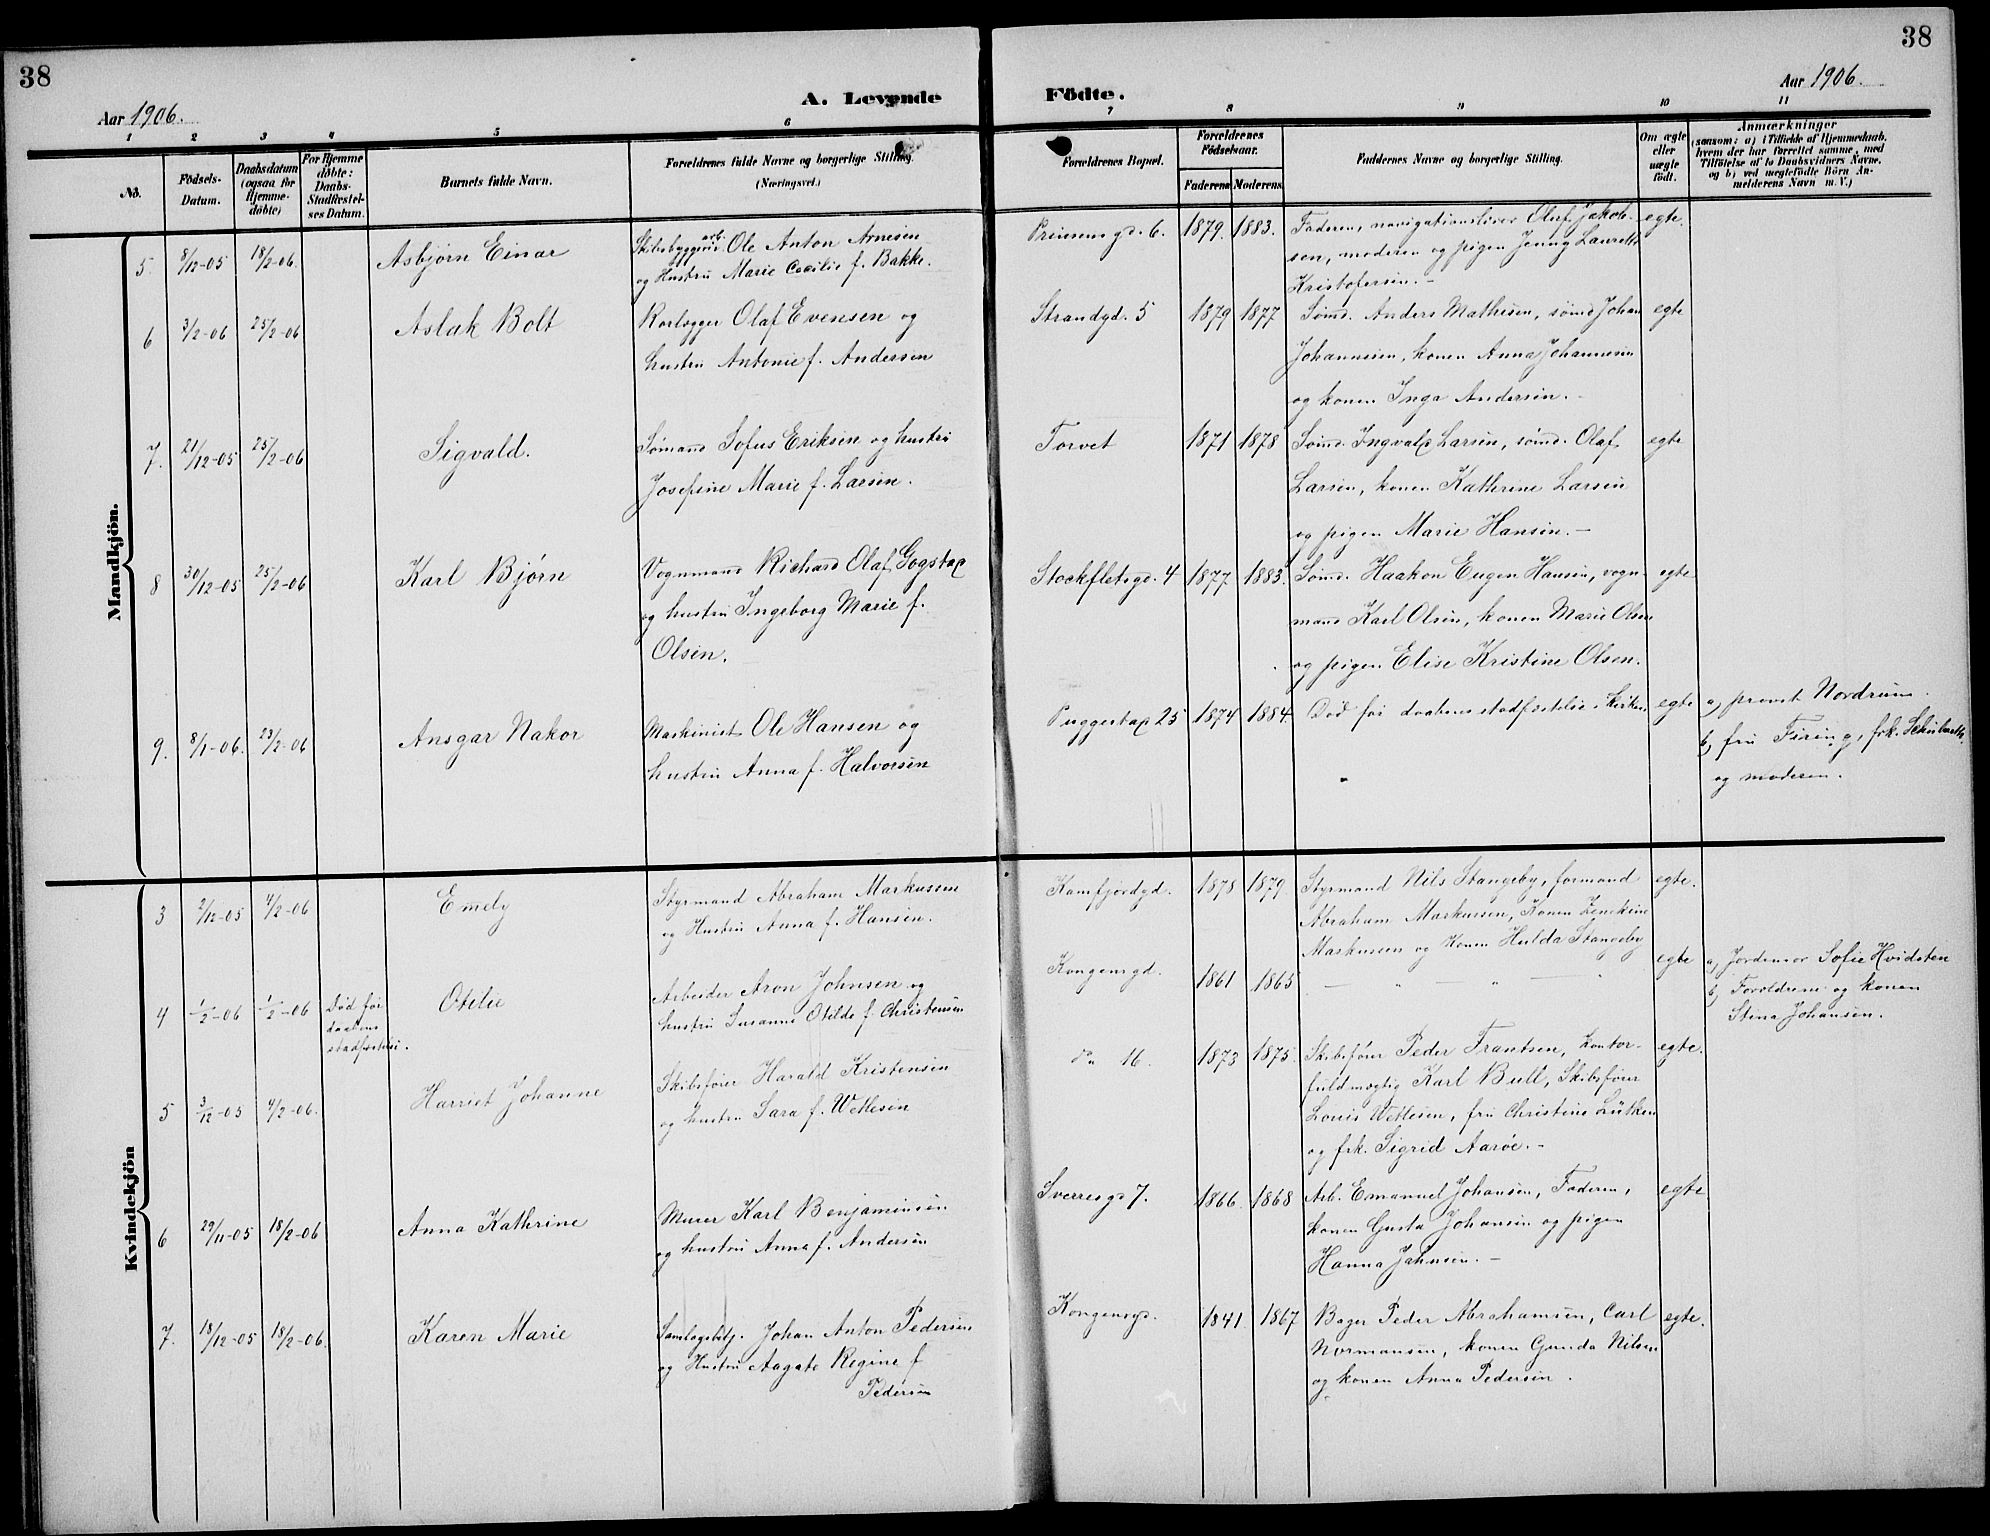 38
38
Aar 1906.
A. Levende
Födte.
Aar 1906.
1 2 3 4 5 6 7 8 9 10 11
No.
Födsels-
Datum.
Daabsdatum
(ogsaa for
Hjemme-
döbte)
For Hjemme
döbte:
Daabs-
Stadfæstel-
ses Datum.
Barnets fulde Navn.
Forældrenes fulde Navne og borgerlige Stilling.
(Næringsvei.)
Forældrenes Bopæl.
Forældrenes
Födselsaar.
Faderens Moderens
Faddernes Navne og borgerlige Stilling.
Om ægte
eller
uægte
födt.
Anmærkninger
(saasom: a) i Tilfælde af Hjemmedaab,
hvem der har forrettet samme, med
Tilföielse af to Daabsvidners Navne,
og b) ved uægtefödte Börn An-
melderens Navn m. V.)
Mandkjön.
5. 8/12-05 18/2-06. Asbjørn Einar
Skibsbyggeriarb. Ole Anton Arnesen
og Hustru Marie Cecilie f. Bakke.
Prinsensgd. 6. 1879. 1883.
Faderen, navigationslærer Oluf Jakob- egte.
sen, moderen og pigen Jenny Lauretta
Kristofersen. -
6 3/2-06 25/2-06 Aslak Bolt
Rørlægger Olaf Evensen og
hustru Antonie f. Andersen
Strandgd. 5 1879 1877
Sømd. Anders Mathisen, sømd Johan egte
Johannsen, konen Anna Johannesen
og konen Inga Andersen. -
7. 21/12-05 25/2-06 Sigvald.
Sømand Sofus Eriksen og hustru
Josefine Marie f. Larsen.
Torvet 1871 1878
Sømd. Ingvald Larsen, sømd. Olaf egte
Larsen, konen Kathrine Larsen
og pigen Marie Hansen. -
8 30/12-05 25/2-06 Karl Bjørn
Vognmand Richard Olaf Gogstad
og hustru Ingeborg Marie f.
Olsen.
Stockfletsgd. 4 1877 1883.
Sømd. Haakon Eugen Hansen, vogn- egte
mand Karl Olsen, konen Marie Olsen
og pigen Elise Kristine Olsen.
9. 8/1-06. 23/2-06 Ansgar Nakor
Maskinist Ole Hansen og
hustru Anna f. Halvorsen
Puggestad 25 1874 1884.
Død før daabens stadfæstelse i Kirken egte
a) provst Nordrum.
b) fru Firing, frk.
og moderen.
Kvindekjön
3 2/12-05 4/2-06 Emely
Styrmand Abraham Markussen
og Hustru Anna f. Hansen.
Kamfjordgd. 1878 1879.
Styrmand Nils Stangeby, formand egte.
Abraham Markussen, Konen
Markussen og Konen Hulda Stangeby
4 1/2-06 1/2-06
Død før
daabens
stadfæstelse.
Otilie
Arbeider Aron Johnsen og
hustru Susanne Otilde f. Christensen
Kongensgd. 1861 1865
— " " egte
a) Jordemor Sofie Hvidsten
b) Forældrene og konen
Stina Johansen.
5 3/12-05 4/2-06. Harriet Johanne
Skibsfører Harald Kristensen
og hustru Sara f. Wettesen
do 16 1873 1875.
Skibsfører Peder Frantsen, kontor- egte.
fuldmægtig Karl Bull, Skibsfører
Louis Wettesen, fru Christine Lütken
og frk. Sigrid Aarøe. -
6 29/11-05 18/2-06 Anna Kathrine
Murer Karl Benjaminsen
og hustru Anna f. Andersen
Sverresgd 7. 1866 1868
Arb. Emanuel Johansen, Faderen, egte
konen Gusta Johansen og pigen
Hanna Jahnsen. -
7. 18/12-05 18/2-06. Karen Marie
Samlagsbetj. Johan Anton Pedersen
og Hustru Aagate Regine f.
Pedersen
Kongensgd. 1841. 1867
Bager Peder Abrahamsen, Carl egte.
Normansen, konen Gunda Nilsen
og konen Anna Pedersen.